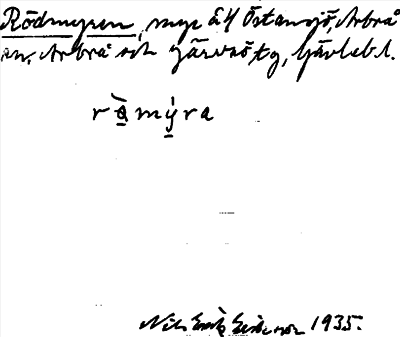 Rödmyren, myr å 4 Östansjö, Arbrå
sn, Arbrå och Järvsö tg, Gävleb. l.
rò̱mý̱ra
Nils Erik 1935.